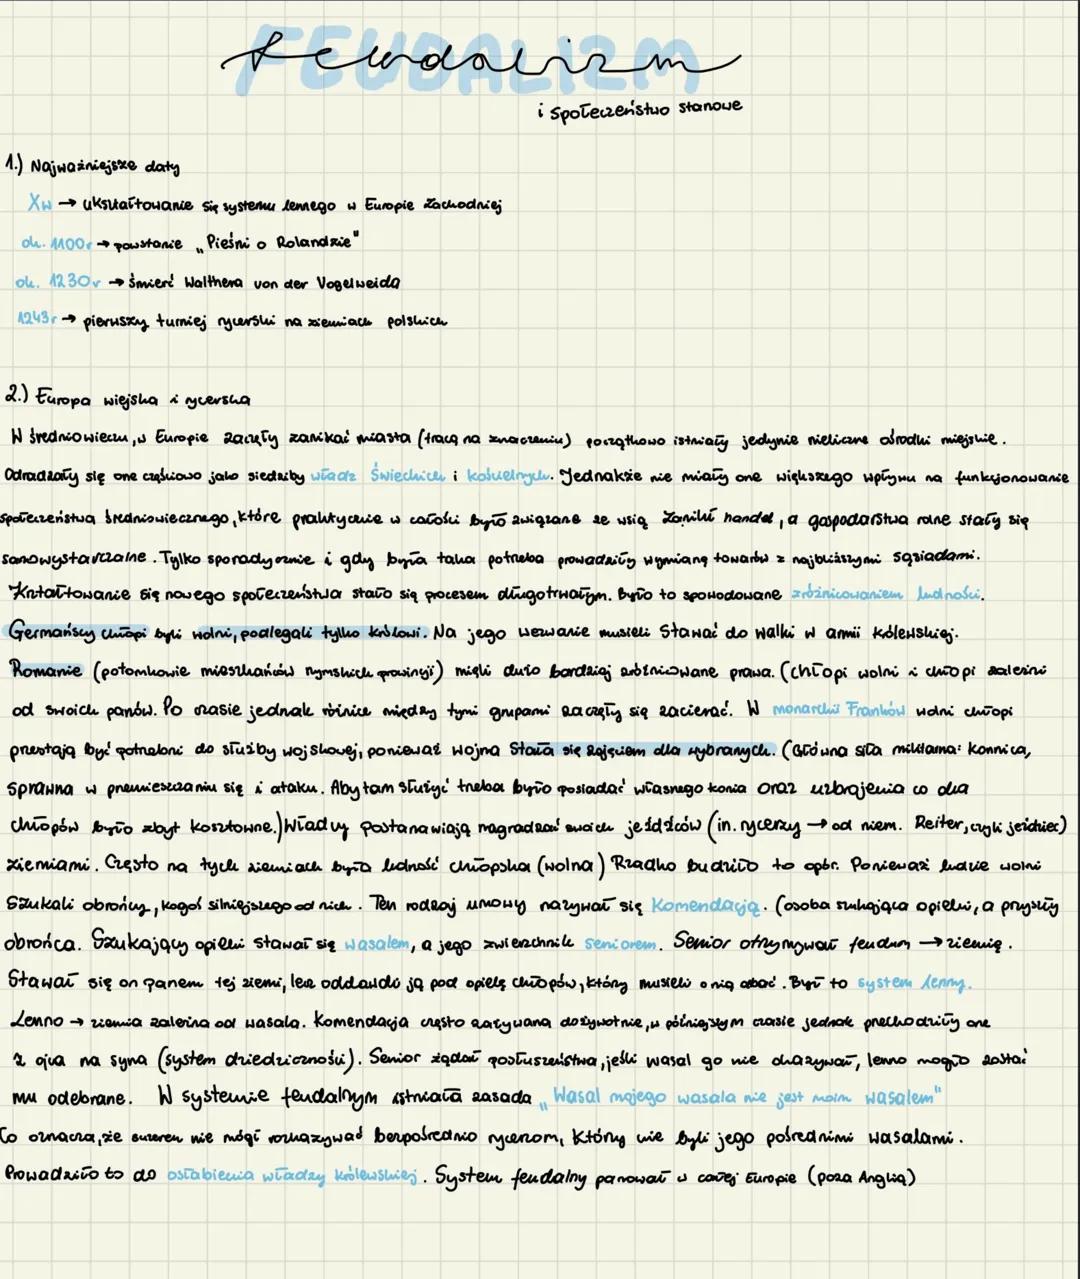 FEUDALIZM
feudalizm
i społeczeństwo stanowe
1.) Najważniejsze daty
Xw → ukształtowanie się systemu lennego w Europie Zachodniej
ok. 1100r → powstanie „Pieśni o Rolandzie"
ok. 1230r → śmierć Walthera von der Vogelweida
1243r → pierwszy turniej rycerski na ziemiach polskich
2.) Europa wiejska i rycerska
W średniowieczu, w Europie zaczęły zanikać miasta (tracą na znaczeniu) początkowo istniały jedynie nieliczne ośrodki miejskie.
Odradzały się one częściowo jako siedziby władz świeckich i kościelnych. Jednakże nie miały one większego wpływu na funkcjonowanie
społeczeństwa średniowiecznego, które praktycznie w całości było związane ze wsią. Zanikł handel, a gospodarstwa rolne stały się
samowystarczalne. Tylko sporadycznie i gdy była taka potrzeba prowadziły wymianę towarów z najbliższymi sąsiadami.
Kształtowanie się nowego społeczeństwa stało się procesem długotrwałym. Było to spowodowane zróżnicowaniem ludności.
Germańscy chłopi byli wolni, podlegali tylko królowi. Na jego wezwanie musieli stawać do walki w armii królewskiej.
Romanie (potomkowie mieszkańców rzymskich prowincji) mieli dużo bardziej zróżnicowane prawa. (chłopi wolni i chłopi zależni
od swoich panów. Po czasie jednak różnice między tymi grupami zaczęły się zacierać. W monarchii Franków wolni chłopi
przestają być potrzebni do służby wojskowej, ponieważ wojna stała się zajęciem dla wybranych. (Główna siła militarna: konnica,
sprawna w przemieszczaniu się i ataku. Aby tam służyć trzeba było posiadać własnego konia oraz uzbrojenia co dla
chłopów było zbyt kosztowne.) Władcy postanawiają nagradzać swoich jeźdźców (in. rycerzy → od niem. Reiter, czyli jeździec)
ziemiami. Często na tych ziemiach była ludność chłopska (wolna) Rzadko budziło to opór. Ponieważ ludzie wolni
szukali obrońcy, kogoś silniejszego od nich. Ten rodzaj umowy nazywał się komendacją. (osoba szukająca opieki, a przyszły
obrońca. Szukający opieki stawał się wasalem, a jego zwierzchnik seniorem. Senior otrzymywał feudum → ziemię.
Stawał się on panem tej ziemi, lecz oddawał ją pod opiekę chłopów, który musieli o nią dbać. Był to system lenny.
Lenno → ziemia zależna od wasala. Komendacja często zażywana dożywotnie, w późniejszym czasie jednak przechodziły one
z ojca na syna (system dziedziczności). Senior żądał posłuszeństwa, jeśli wasal go nie okazywał, lenno mogło zostać
mu odebrane. W systemie feudalnym istniała zasada „Wasal mojego wasala nie jest moim wasalem"
Co oznacza, że suweren nie mógł rozkazywać bezpośrednio rycerzom, który nie byli jego pośrednimi wasalami.
Prowadziło to do osłabienia władzy królewskiej. System feudalny panował w całej Europie (poza Anglią)